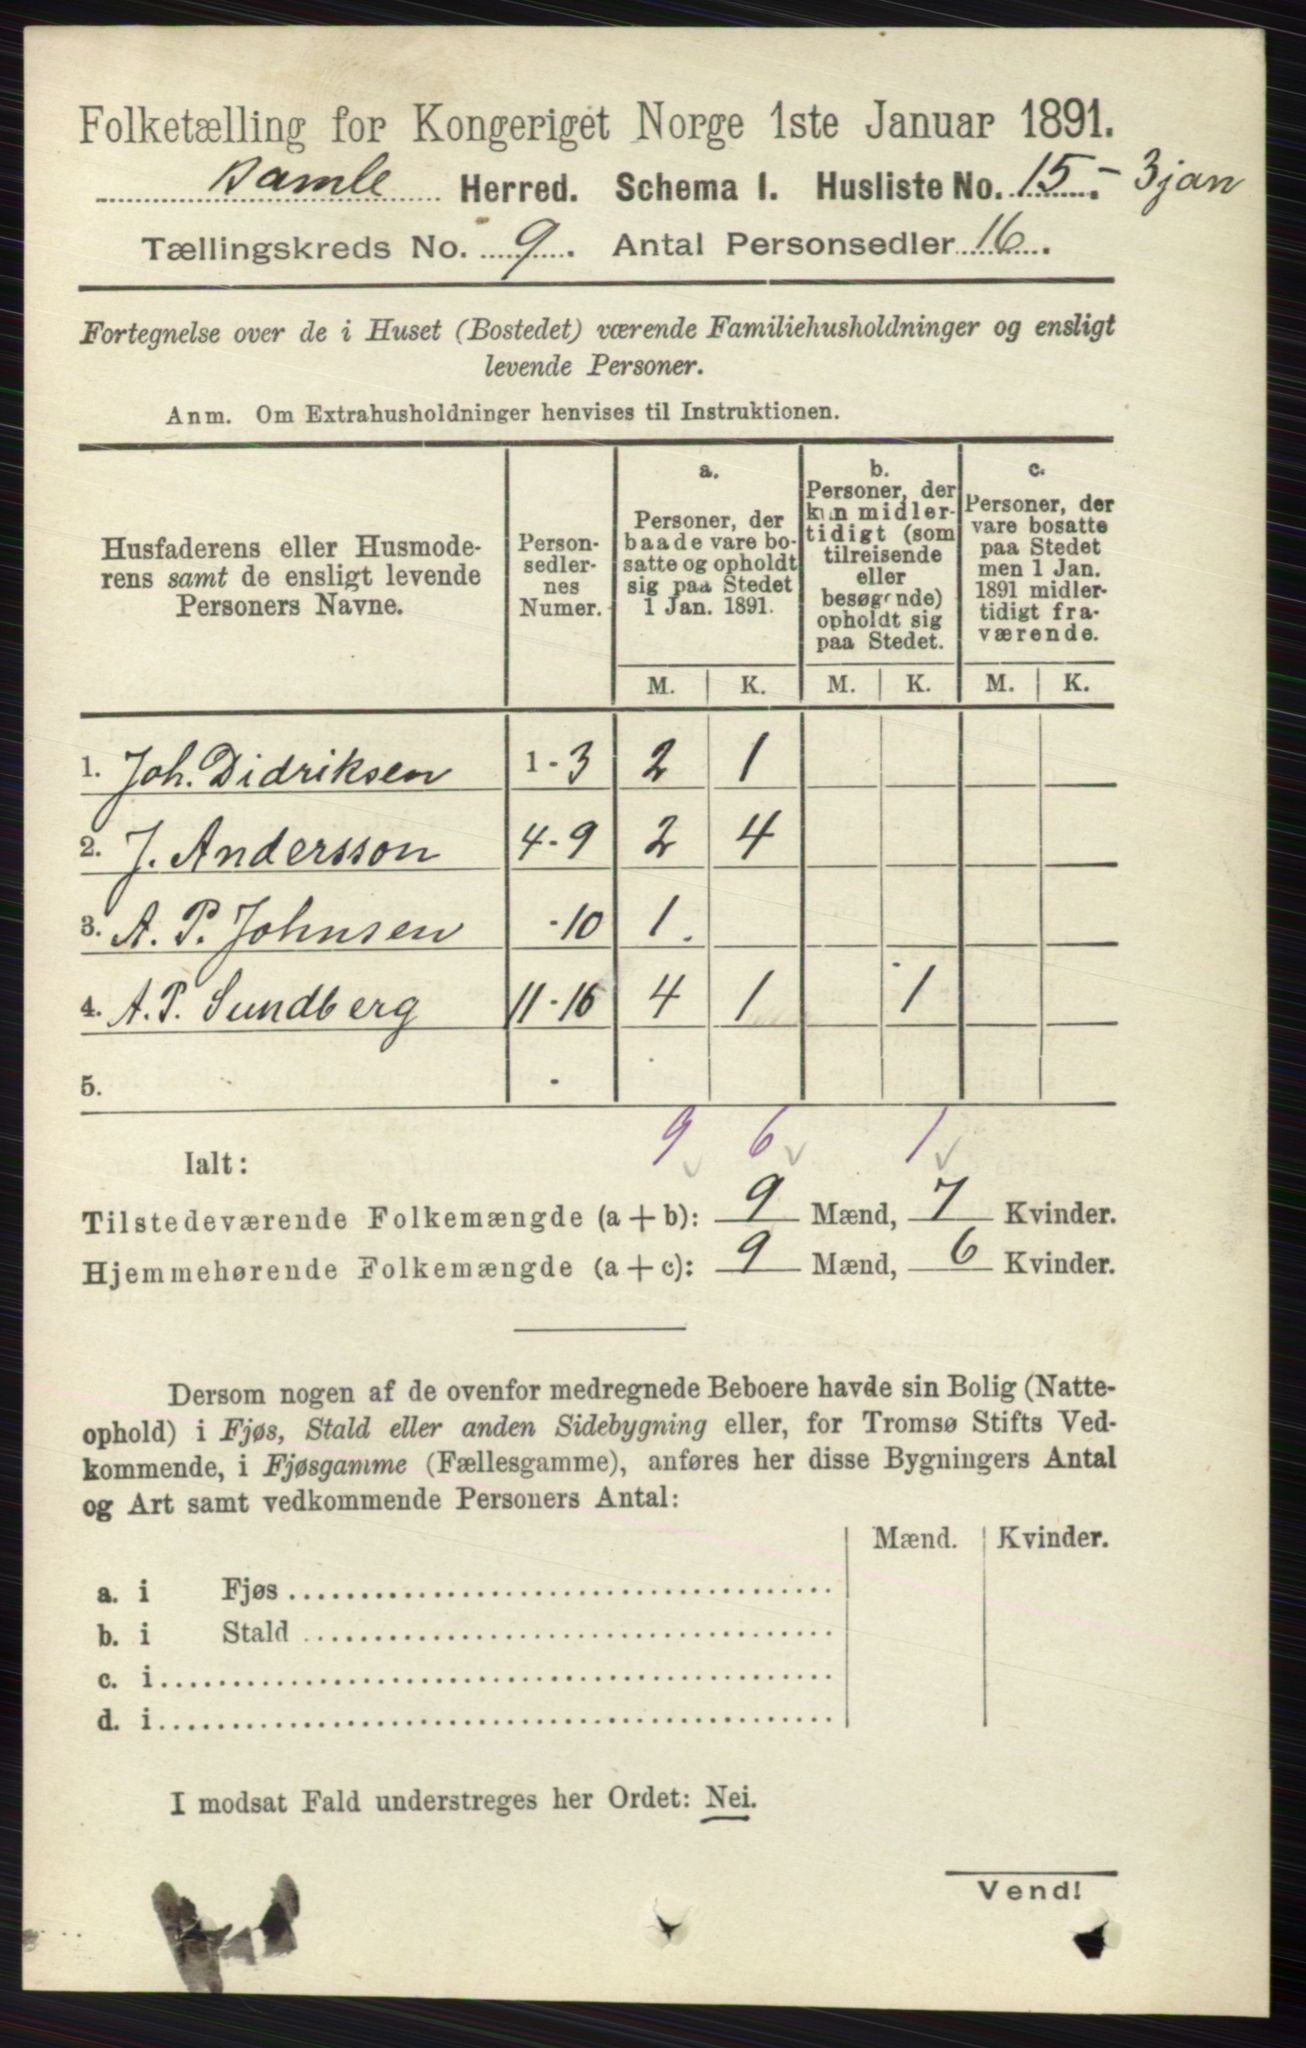 Folketælling for Kongeriget Norge 1ste Januar 1891.
Bamle Herred. Schema I. Husliste No. 15.- 3 jan
Tællingskreds No. 9. Antal Personsedler 16.
Fortegnelse over de i Huset (Bostedet) værende Familiehusholdninger og ensligt
levende Personer.
Anm. Om Extrahusholdninger henvises til Instruktionen.
Husfaderens eller Husmode-
rens samt de ensligt levende
Personers Navne.
Person-
sedler-
nes
Numer.
a.
Personer, der
baade vare bo-
satte og opholdt
sig paa Stedet
1 Jan. 1891.
b.
Personer, der
kun midler-
tidigt (som
tilreisende
eller
besøgende)
opholdt sig
paa Stedet.
c.
Personer, der
vare bosatte
paa Stedet
men 1 Jan.
1891 midler-
tidigt fra-
værende.
M. K. M. K. M. K.
1. Joh. Didriksen 1-3 2 1
2. J. Andersson 4-9 2 4
3. A. P. Johnsen -10 1.
4. A. P. Sundberg 11-16 4 1 1
5.
9 6 1
Ialt:
Tilstedeværende Folkemængde (a + b): 9 Mænd, 7 Kvinder.
Hjemmehørende Folkemængde (a + c): 9 Mænd, 6 Kvinder.
Dersom nogen af de ovenfor medregnede Beboere havde sin Bolig (Natte-
ophold) i Fjøs, Stald eller anden Sidebygning eller, for Tromsø Stifts Ved-
kommende, i Fjøsgamme (Fællesgamme), anføres her disse Bygningers Antal
og Art samt vedkommende Personers Antal:
Mænd. Kvinder.
a. i Fjøs
b. i Stald
c. i
d. i
I modsat Fald understreges her Ordet: Nei.
Vend!